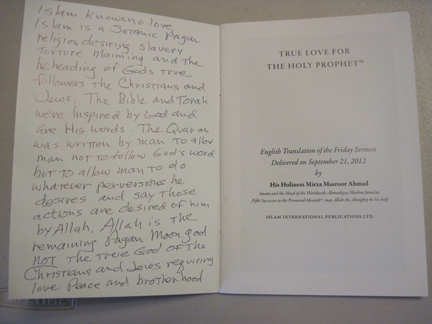 Islam knows no love
Islam is a Satanic Pagan
religion desiring slavery
torture maiming and the
beheading of Gods true
followers the Christians and
Jews. The Bible and Torah
were inspired by God and
are His words. The Quran
was written by man to allow
man not to follow God's word
but to allow man to do
whatever perversions he
desires and say those
actions are desired of him
by Allah. Allah is the
remaining Pagan Moon god
NOT the true God of the
Christians and Jews requiring
love Peace and brotherhood
TRUE LOVE FOR
THE HOLY PROPHETsa
English Translation of the Friday Sermon
Delivered on September 21, 2012
by
His Holiness Mirza Masroor Ahmad
Imam and the Head of the Worldwide Ahmadiyya Muslim Jama'at,
Fifth Successor to the Promised Messiahas, may Allah the Almighty be his help
ISLAM INTERNATIONAL PUBLICATIONS LTD.